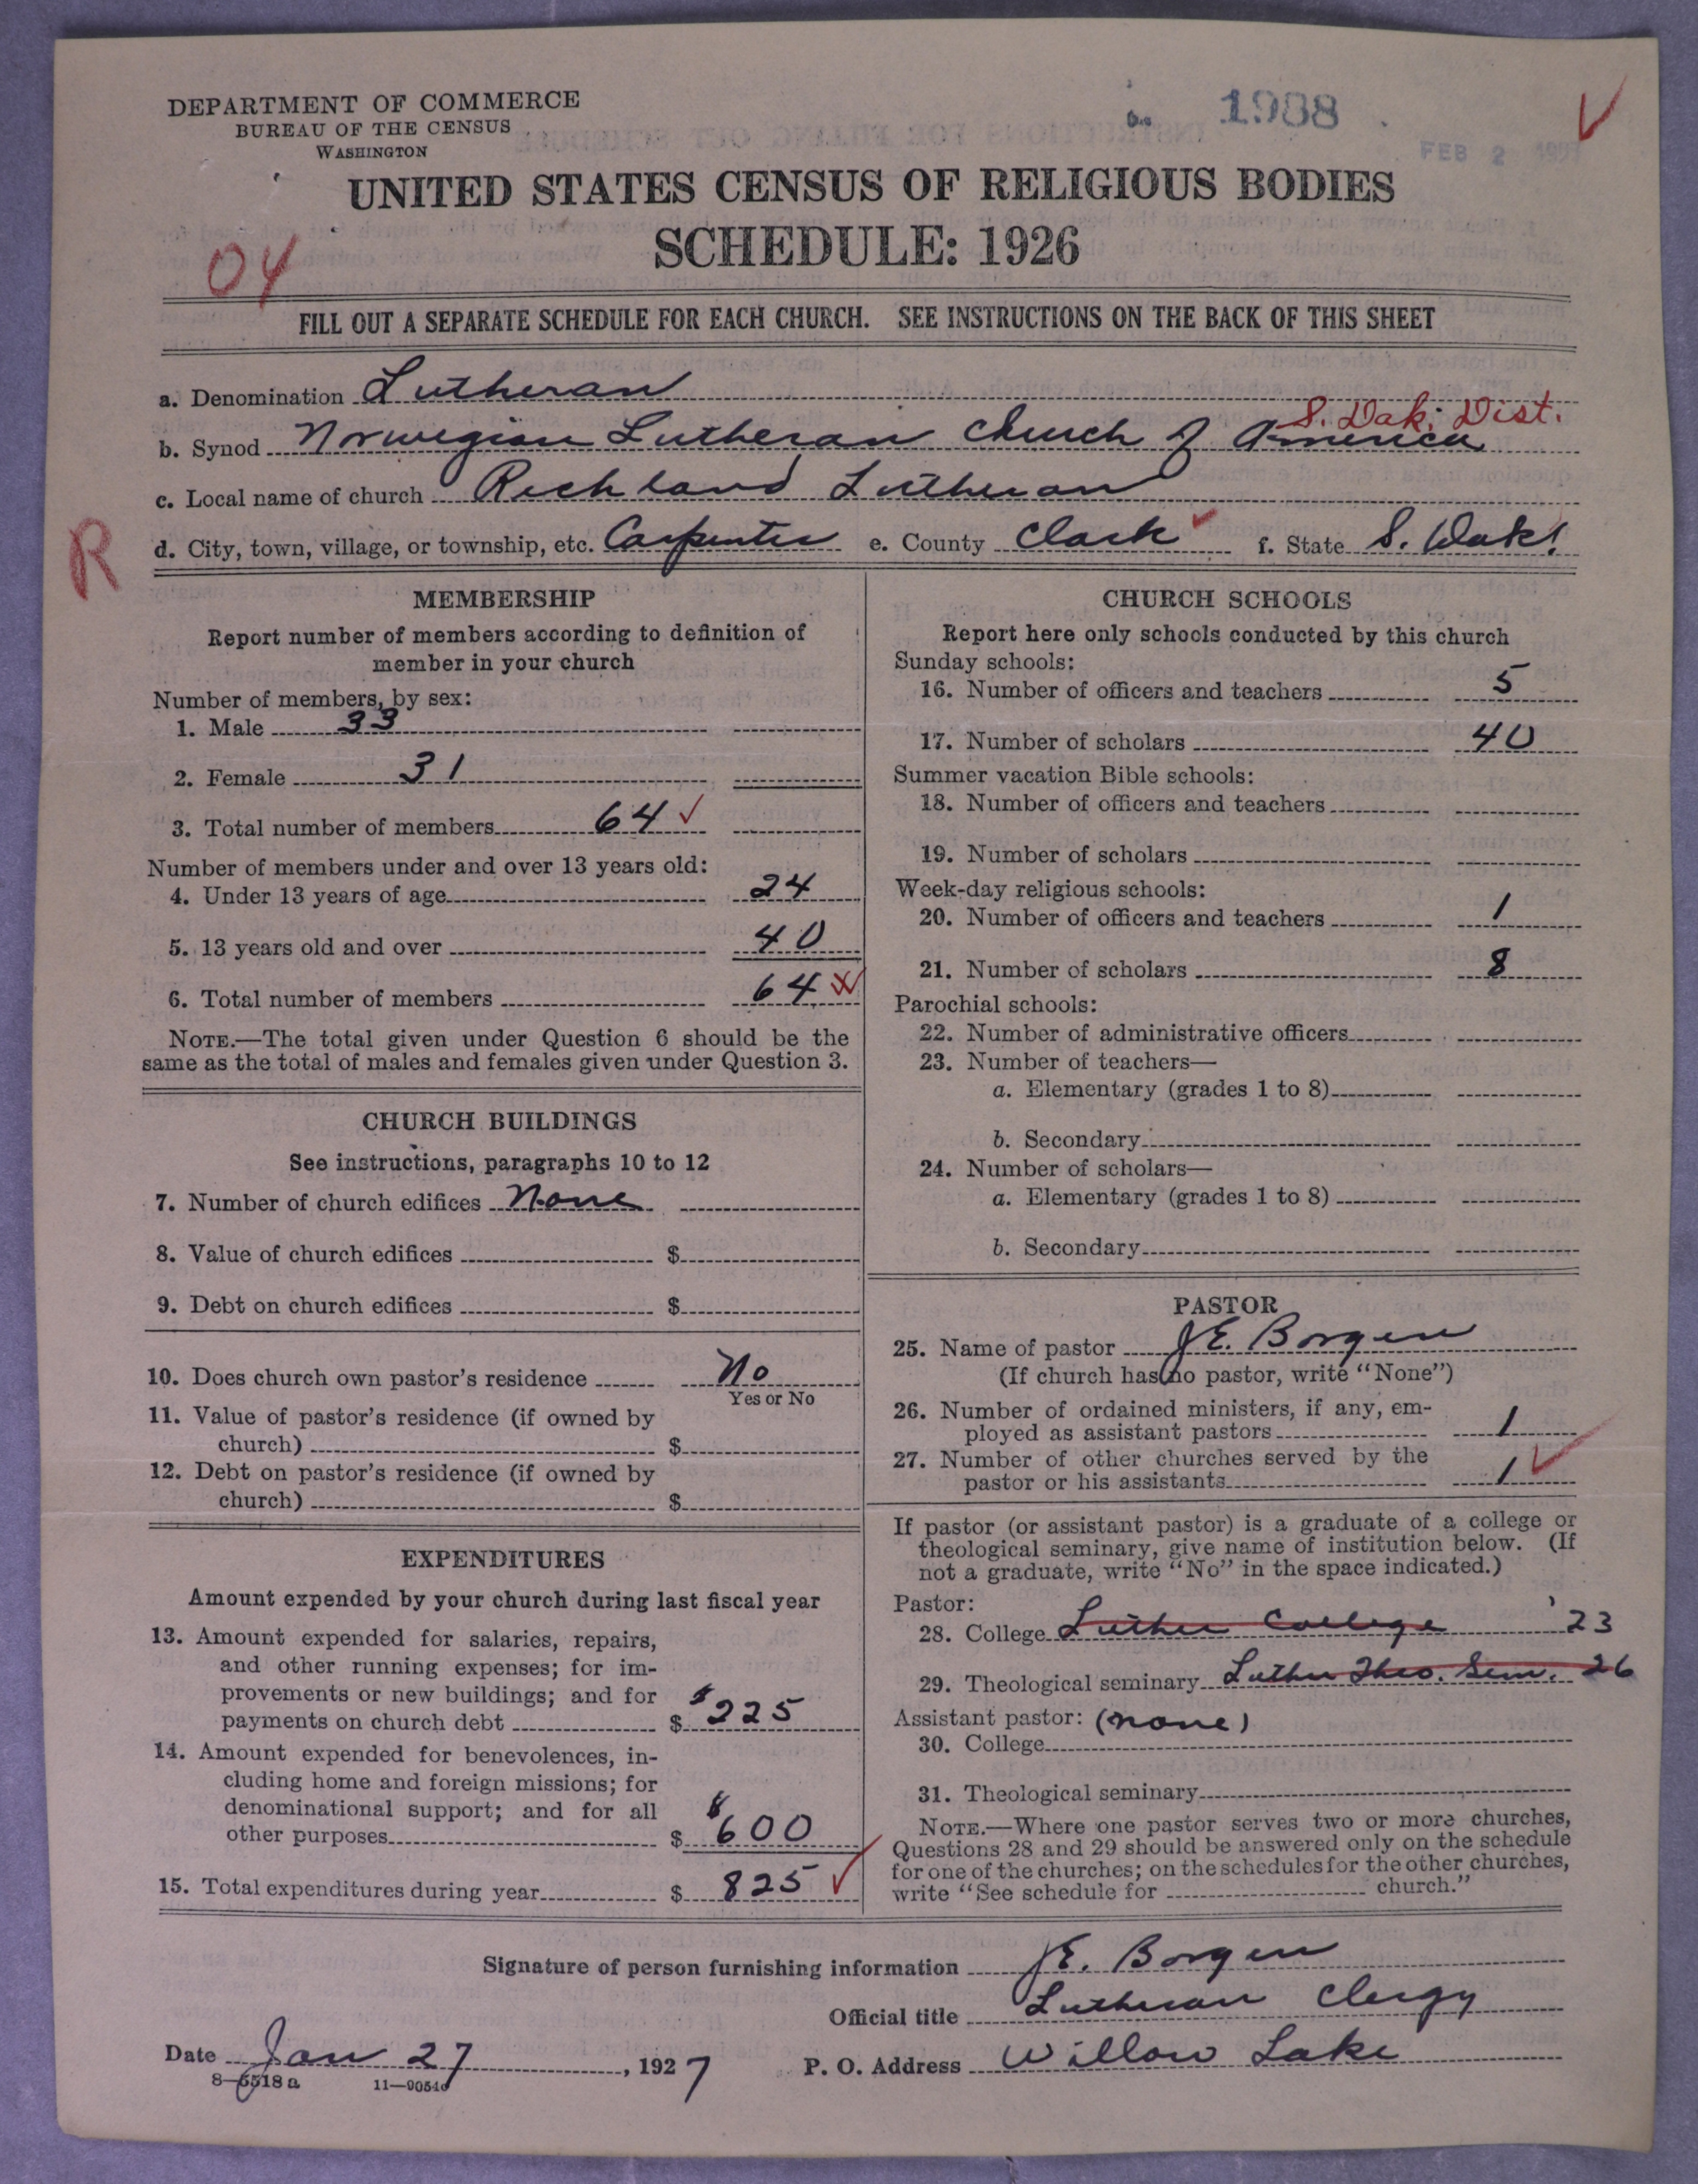 DEPARTMENT OF COMMERCE
BUREAU OF THE CENSUS
WASHINGTON
1988
FEB 2
UNITED STATES CENSUS OF RELIGIOUS BODIES
SCHEDULE: 1926
04
FILL OUT A SEPARATE SCHEDULE FOR EACH CHURCH. SEE INSTRUCTIONS ON THE BACK OF THIS SHEET
a. Denomination Lutheran
S. Dak. Dist.
b. Synod Norwegian Lutheran Church of America
c. Local name of church Richland Lutheran
R
d. City, town, village, or township, etc. Carpenter e. County Clark f. State S. Dak.
MEMBERSHIP
Report number of members according to definition of
member in your church
Number of members, by sex:
1. Male 33
2. Female 31
3. Total number of members 64
Number of members under and over 13 years old:
4. Under 13 years of age 24
5. 13 years old and over 40
6. Total number of members 64
NOTE.—The total given under Question 6 should be the
same as the total of males and females given under Question 3.
CHURCH BUILDINGS
See instructions, paragraphs 10 to 12
7. Number of church edifices None
8. Value of church edifices $
9. Debt on church edifices $
10. Does church own pastor's residence No
Yes or No
11. Value of pastor's residence (if owned by
church) $
12. Debt on pastor's residence (if owned by
church) $
EXPENDITURES
Amount expended by your church during last fiscal year
13. Amount expended for salaries, repairs,
and other running expenses; for im-
provements or new buildings; and for
payments on church debt $ $225
14. Amount expended for benevolences, in-
cluding home and foreign missions; for
denominational support; and for all
other purposes $ $600
15. Total expenditures during year $ 825
CHURCH SCHOOLS
Report here only schools conducted by this church
Sunday schools:
16. Number of officers and teachers 5
17. Number of scholars 40
Summer vacation Bible schools:
18. Number of officers and teachers
19. Number of scholars
Week-day religious schools:
20. Number of officers and teachers 1
21. Number of scholars 8
Parochial schools:
22. Number of administrative officers
23. Number of teachers—
a. Elementary (grades 1 to 8)
b. Secondary
24. Number of scholars—
a. Elementary (grades 1 to 8)
b. Secondary
PASTOR
25. Name of pastor J.E. Borgen
(If church has no pastor, write "None")
26. Number of ordained ministers, if any, em-
ployed as assistant pastors 1
27. Number of other churches served by the
pastor or his assistants 1
If pastor (or assistant pastor) is a graduate of a college or
theological seminary, give name of institution below. (If
not a graduate, write "No" in the space indicated.)
Pastor:
28. College Luther College '23
29. Theological seminary Luther Theo. Sem. 26
Assistant pastor: (none)
30. College
31. Theological seminary
NOTE.—Where one pastor serves two or more churches,
Questions 28 and 29 should be answered only on the schedule
for one of the churches; on the schedules for the other churches,
write "See schedule for church."
Signature of person furnishing information J.E. Borgen
Official title Lutheran Clergy
Date Jan 27, 1927 P. O. Address Willow Lake
8—5518a 11—90540